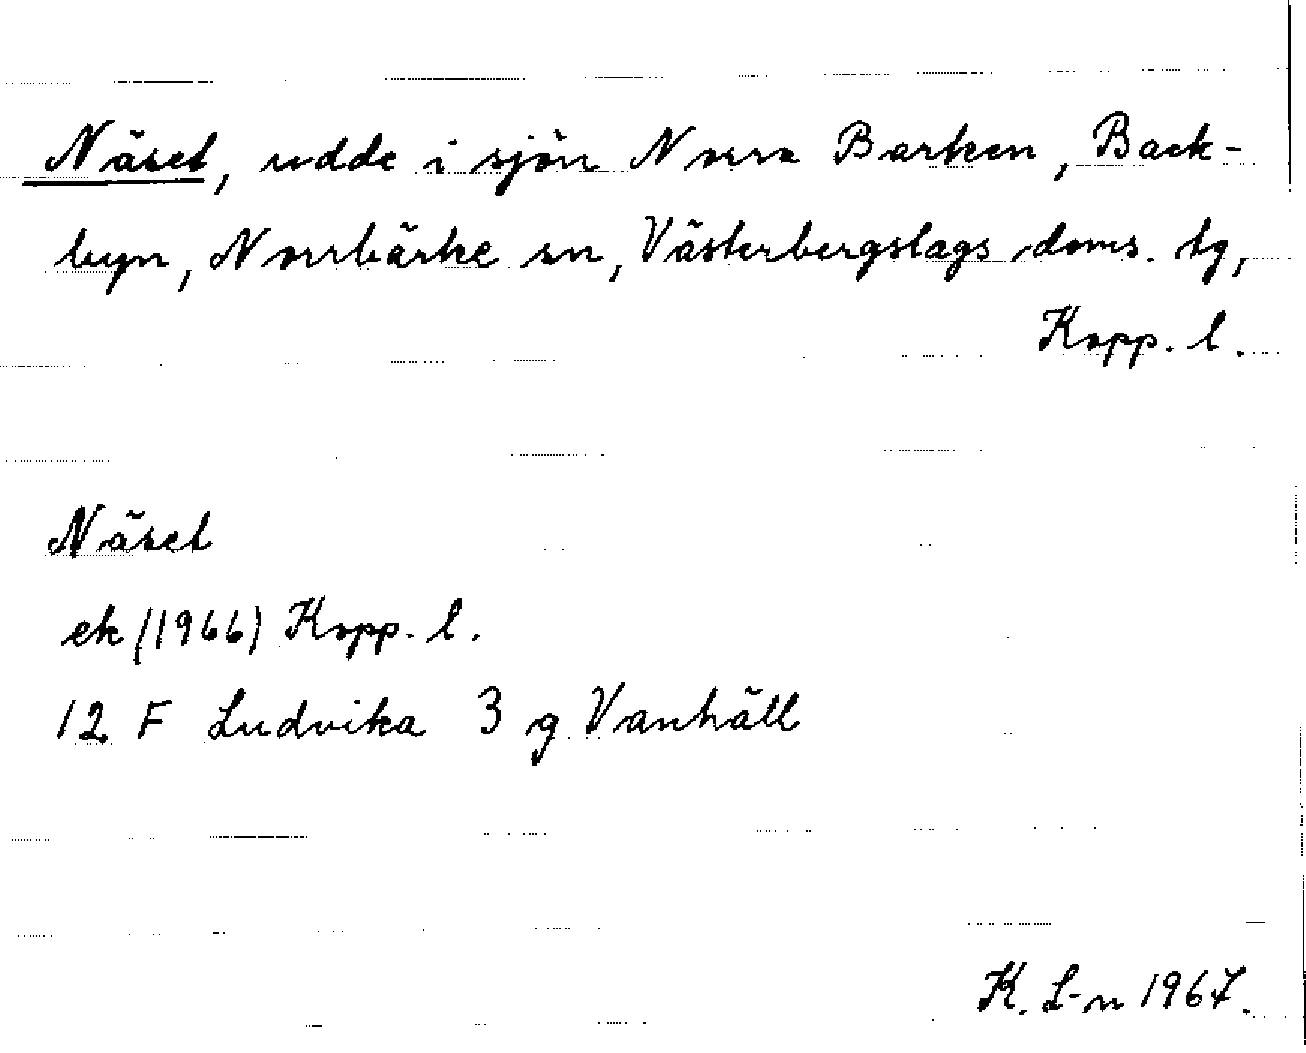 Näset, udde i sjön Norra Barken, Back-
byn, Norrbärke sn, Västerbergslags doms. tg,
Kopp. l.
Näset
ek (1966) Kopp. l.
12 F Ludvika 3 g Vanhäll
K. L-n 1967.